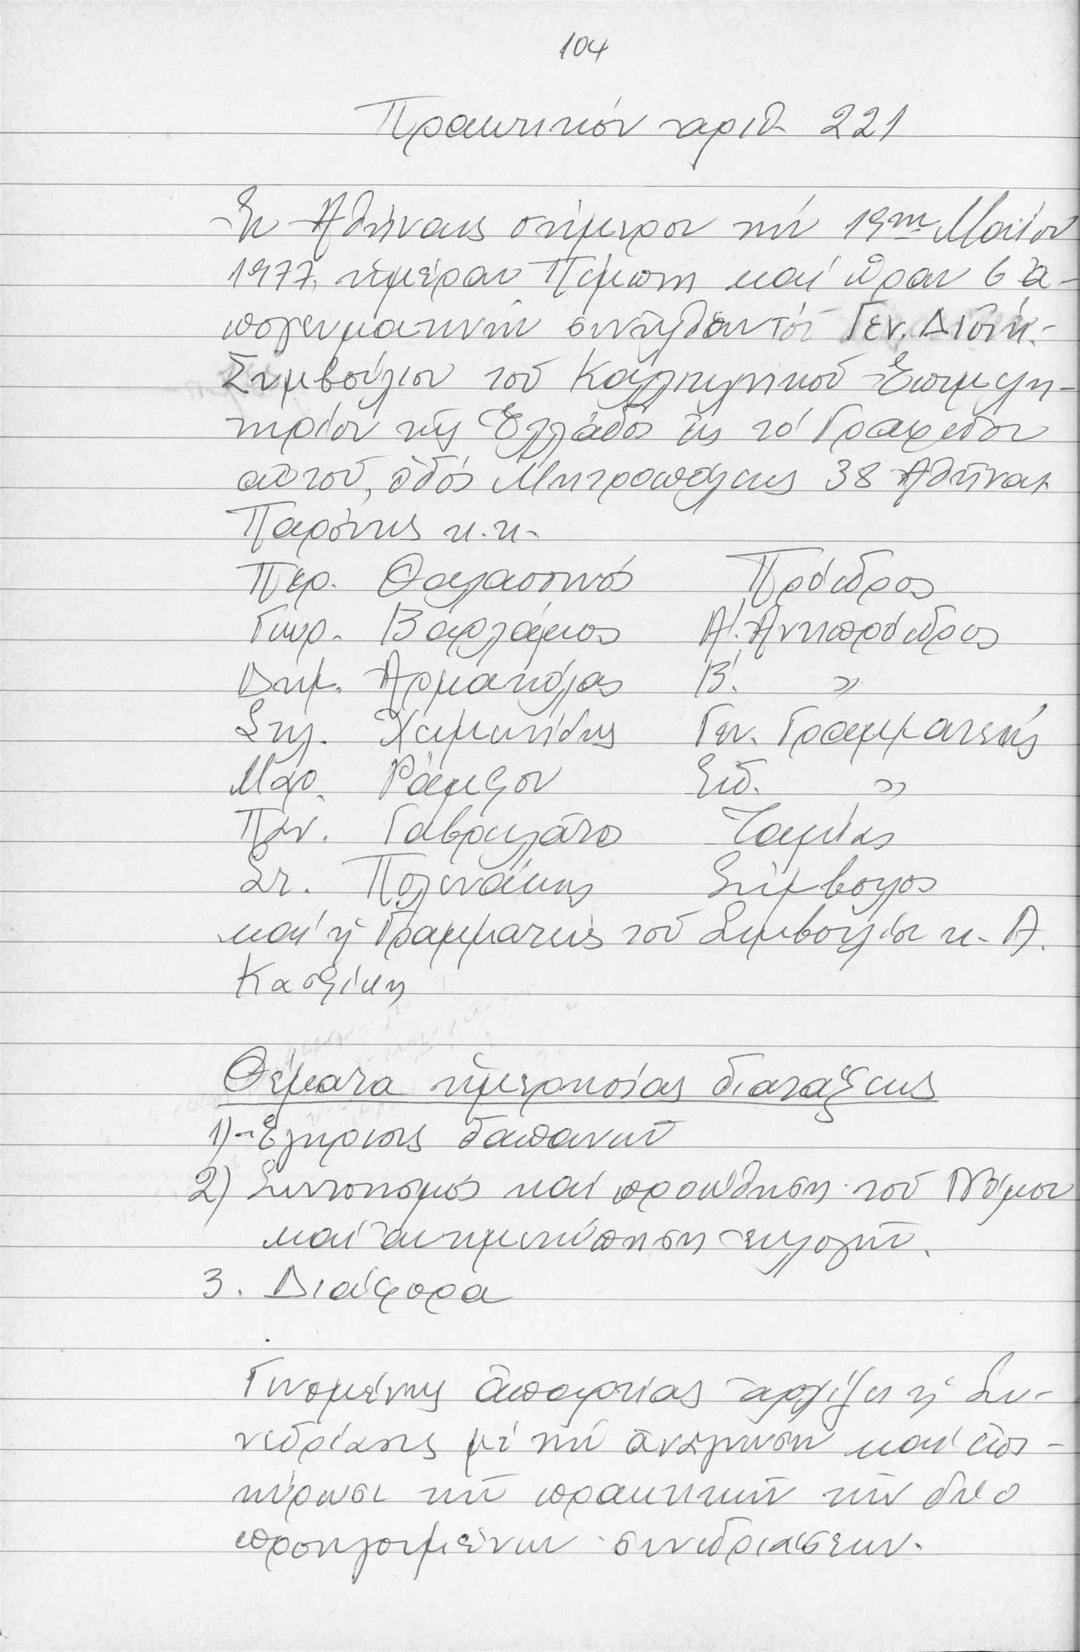 104
Πρακτικόν ἀριθ. 221
Ἐν Ἀθήναις σήμερον τήν 19ην Μαΐου
1977, ἡμέραν Πέμπτη καί ὥραν 6 ἀ-
πογευματινήν συνῆλθεν τό Γεν. Διοικ.
Συμβούλιον τοῦ Καλλιτεχνικοῦ Ἐπιμελη-
τηρίου τῆς Ἑλλάδος εἰς τό Γραφεῖον
αὐτοῦ, ὁδός Μητροπόλεως 38 Ἀθῆναι
Παρόντες κ.κ.
Περ. Θαλασσινός Πρόεδρος
Γεωρ. Βαρλάμος Α'. Ἀντιπρόεδρος
Δημ. Ἀρμακόλας Β'. »
Στυλ. Γεν. Γραμματεύς
Μαρ. Ράμφου Εἰδ. »
Παν. Γαβριλᾶτος Ταμίας
Στ. Πολενάκης Σύμβουλος
καί ἡ Γραμματεύς τοῦ Συμβουλίου κ. Α.
Θέματα ἡμερησίας διατάξεως
1) Ἔγκρισις δαπανῶν
2) Συντονισμός καί προώθηση τοῦ Νόμου
καί ἀντιμετώπιση ἐκλογῶν.
3. Διάφορα
Γενομένης ἀπαρτίας ἀρχίζει ἡ Συ-
νεδρίασις μέ τήν ἀνάγνωση καί ἐπι-
κύρωσι τῶν πρακτικῶν τῶν δύο
προηγουμένων συνεδριάσεων.